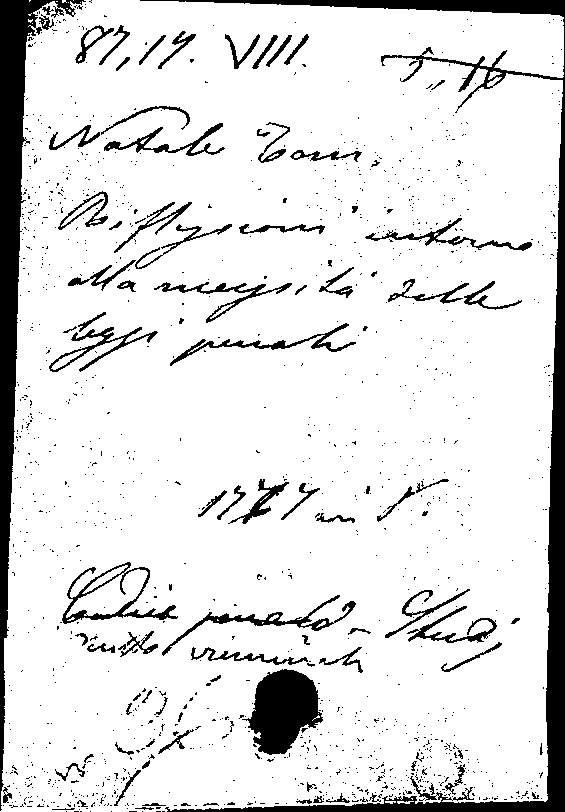 87,14. VIII. 5,, 16
Natale Tom.
Riflessioni intorno
alla necessità delle
leggi penali
1777 in 8.
Codice penale - Studj
diritto criminale